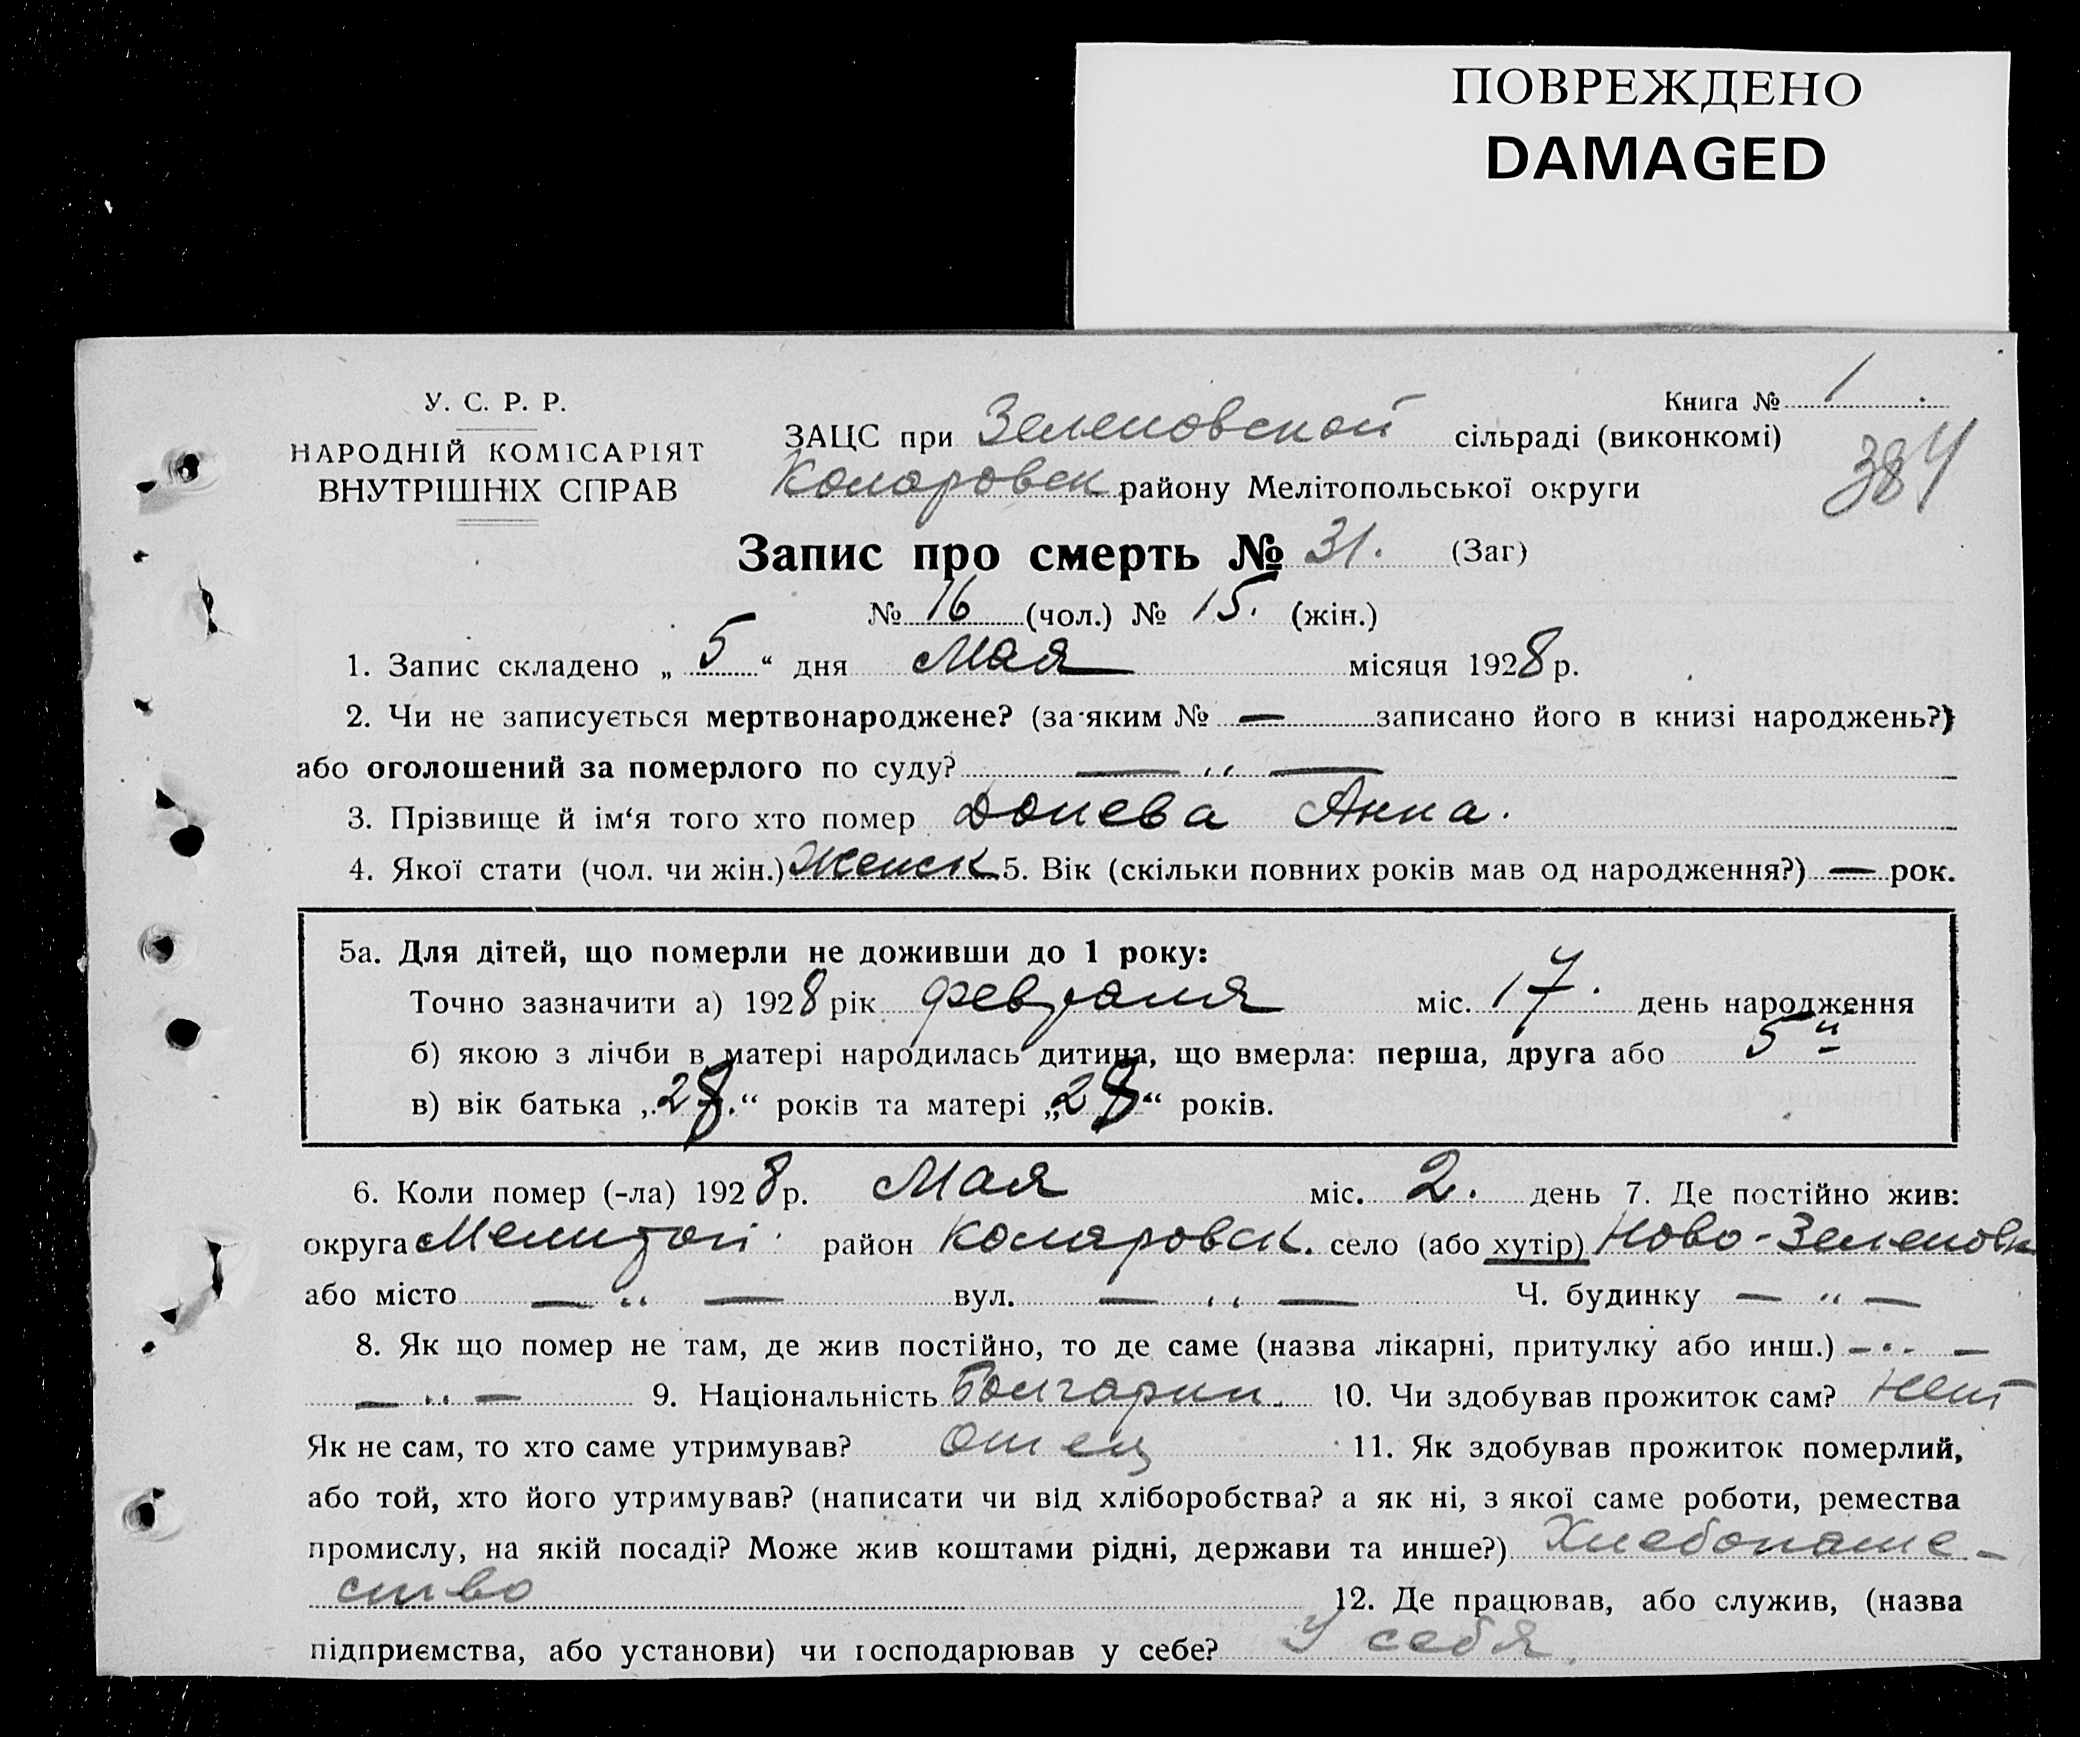 ПОВРЕЖДЕНО
DAMAGED
У. С. Р. Р.
НАРОДНІЙ КОМІСАРІЯТ
ВНУТРІШНІХ СПРАВ
Книга № 1
384
ЗАЦС при Зеленовской сільраді (виконкомі)
Коларовск району Мелітопольської округи
Запис про смерть № 31. (Заг)
№ 16 (чол.) № 15. (жін.)
1. Запис складено „ 5 “ дня Мая місяця 1928 р.
2. Чи не записується мертвонароджене? (за яким № — записано його в книзі народжень?)
або оголошений за померлого по суду? — „ —
3. Прізвище й ім‘я того хто помер Донева Анна.
4. Якої стати (чол. чи жін.) Женск 5. Вік (скільки повних років мав од народження?) — рок.
5а. Для дітей, що померли не доживши до 1 року:
Точно зазначити а) 1928 рік февраля міс. 17. день народження
б) якою з лічби в матері народилась дитина, що вмерла: перша, друга або 5й
в) вік батька „28.“ років та матері „28“ років.
6. Коли помер (-ла) 1928 р. Мая міс. 2. день 7. Де постійно жив:
округа Мелитоп. район Коларовск. село (або хутір) Ново-Зеленовк
або місто — „ — вул. — „ — Ч. будинку — „ —
8. Як що помер не там, де жив постійно, то де саме (назва лікарні, притулку або инш.) — „ —
— „ — 9. Національність Болгарин. 10. Чи здобував прожиток сам? Нет
Як не сам, то хто саме утримував? отец 11. Як здобував прожиток померлий,
або той, хто його утримував? (написати чи від хліборобства? а як ні, з якої саме роботи, ремества
промислу, на якій посаді? Може жив коштами рідні, держави та инше?) Хлебопаше-
ство 12. Де працював, або служив, (назва
підприємства, або установи) чи господарював у себе? У себя.